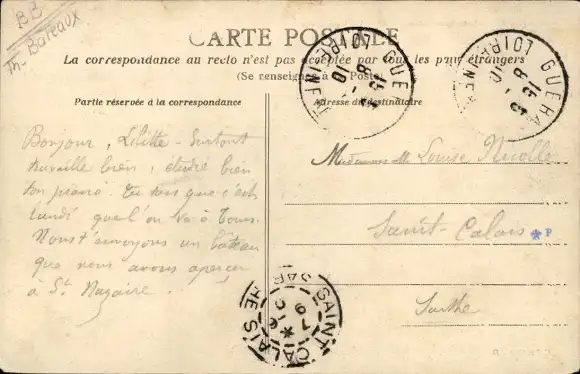 BB
Th- Bateaux
CARTE POSTALE
La correspondance au recto n'est pas acceptée par tous les pays étrangers
(Se renseigner à la Poste)
Partie réservée à la correspondance
Adresse du destinataire
Bonjour, Lilitte - Surtout
travaille bien, étudie bien
ton piano. Tu sais que c'est
lundi que l'on va à Tours.
Nous t'envoyons un bateau
que nous avons aperçu
à St. Nazaire.
Mademoiselle Louise
Saint-Calais
*P
Sarthe
GUÉRANDE LOIRE INFRE
15 8 10
GUÉRANDE LOIRE INFRE
15 8 10
SAINT-CALAIS SARTHE